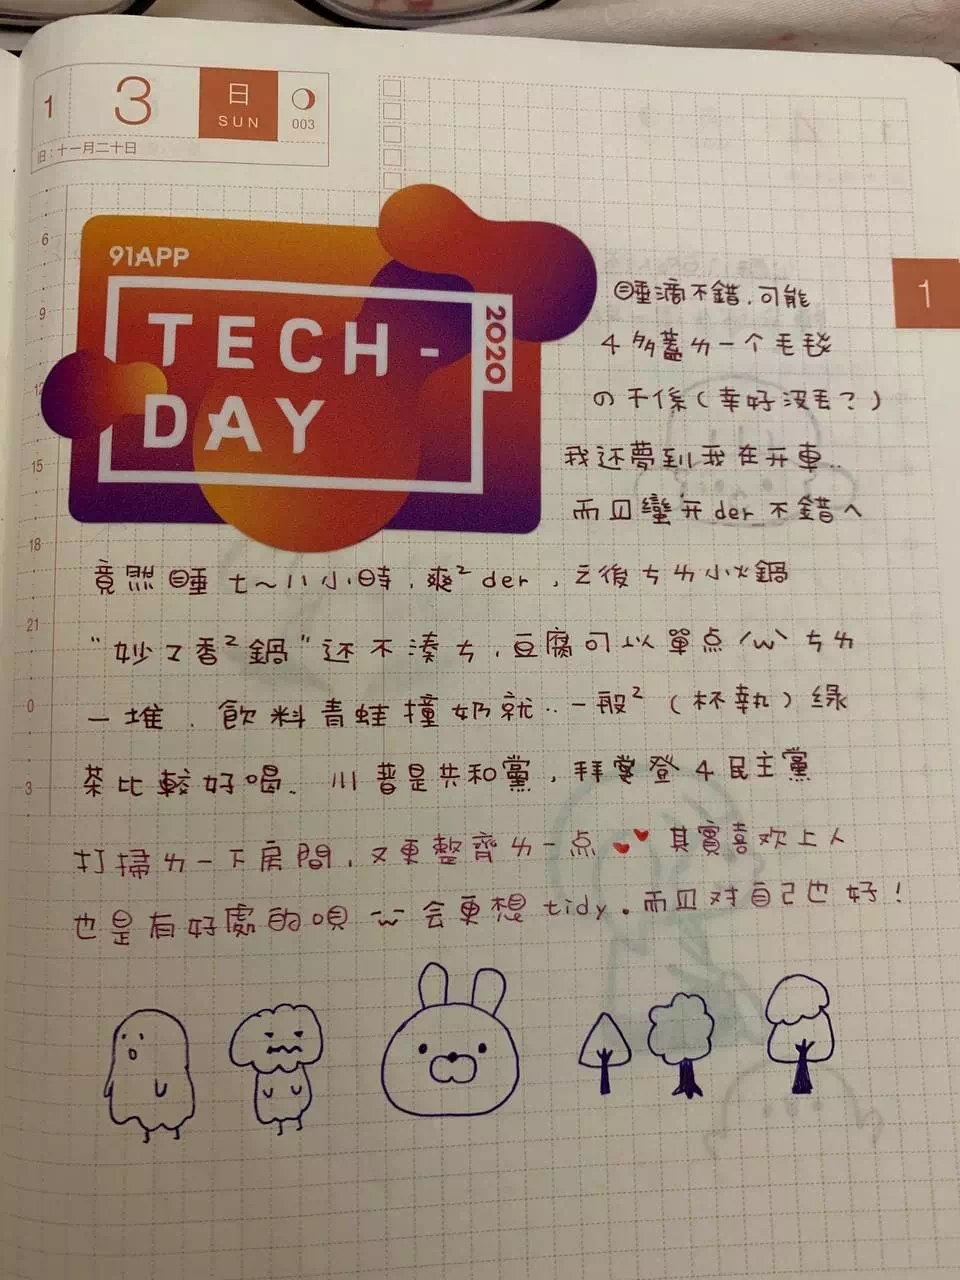 1
3
日
SUN
003
旧:十一月二十日
6
9
12
15
18
21
0
3
1
91APP
TECH-
DAY
2020
睡滴不錯,可能
4多蓋ㄌ一个毛毯
の干係(幸好沒丟?)
我还夢到我在开車..
而且蠻开der不錯ㄟ
竟然睡七~八小時,爽²der,之後ㄘㄌ小火鍋
"妙ㄛ香²鍋"还不湊ㄘ,豆腐可以單点ˊwˋㄘㄌ
一堆.飲料青蛙撞奶就..一般²(杯執)綠
茶比較好喝. 川普是共和黨,拜登登4民主黨
打掃ㄌ一下房間,又更整齊ㄌ一点 其實喜欢上人
也是有好處的唄 ˊwˋ 会更想 tidy。而且对自己也好!